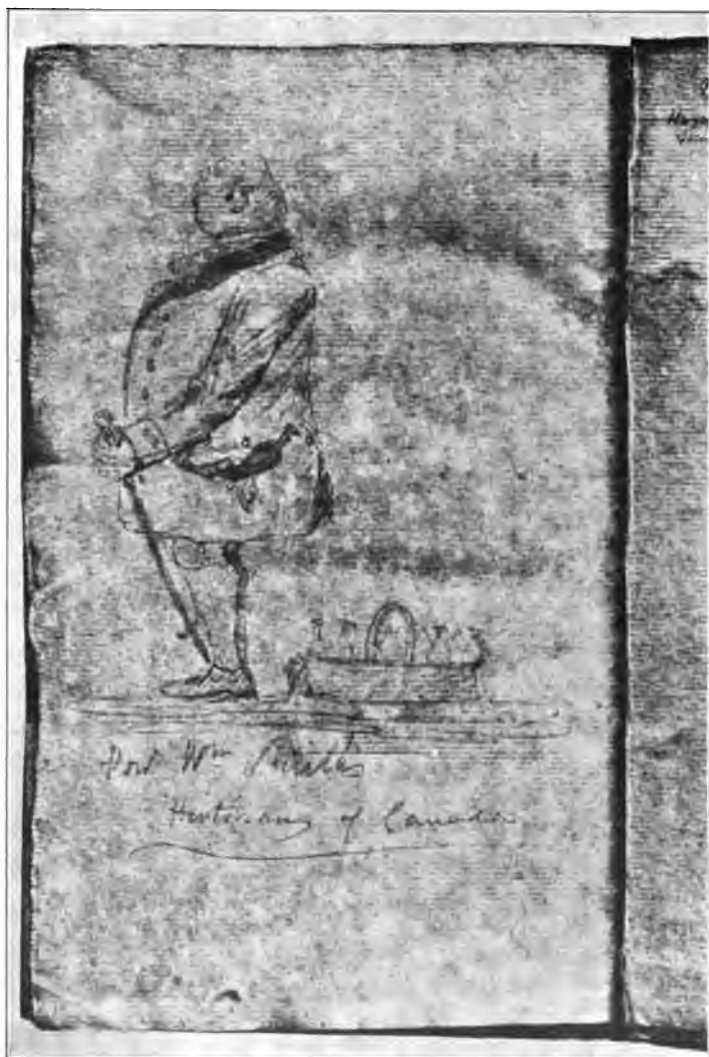 Hon Wm Smith
Historian of Canada